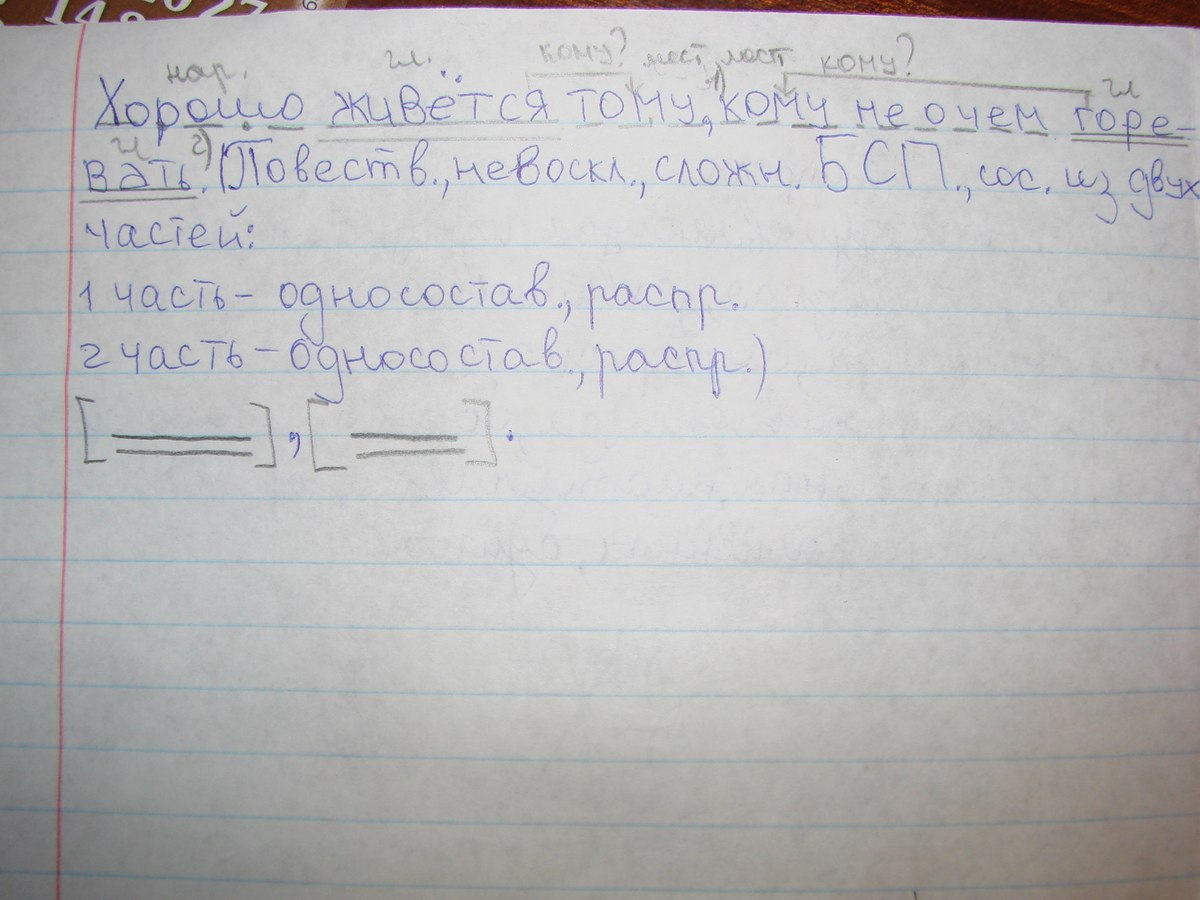 нар. гл. кому? мест. мест кому? гл
Хорошо живётся тому, кому не о чем горе-
гл 2)
вать. (Повеств., невоскл., сложн. БСП., сос. из двух
частей:
1 часть - односостав., распр.
2 часть - односостав., распр.)
[ ], [ ].